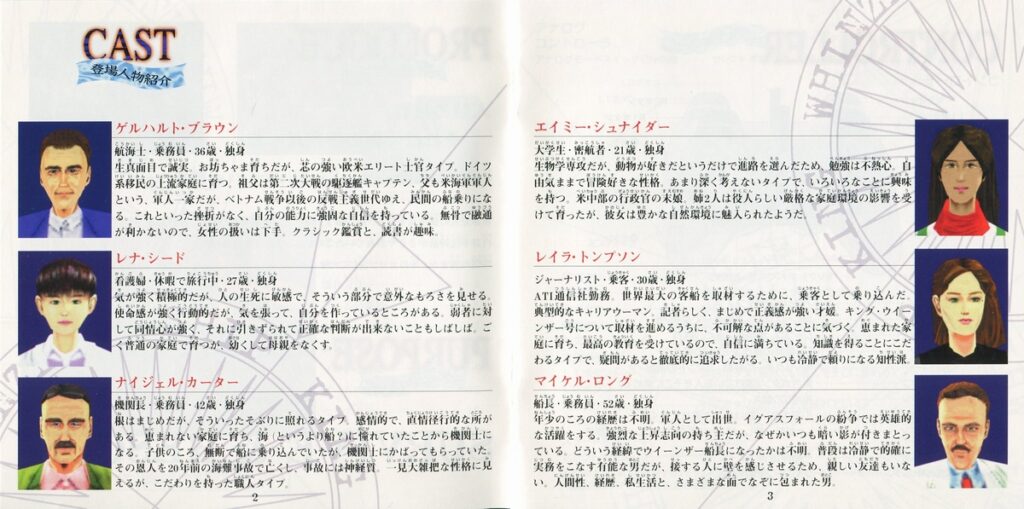 CAST
登場人物紹介
ゲルハルト・ブラウン
航海士・乗務員・36歳・独身
生真面目で誠実。お坊ちゃま育ちだが、芯の強い欧米エリート士官タイプ。ドイツ
系移民の上流家庭に育つ。祖父は第二次大戦の駆逐艦キャプテン、父も米海軍軍人
という、軍人一家だが、ベトナム戦争以後の反戦主義世代ゆえ、民間の船乗りにな
る。これといった挫折がなく、自分の能力に強固な自信を持っている。無骨で融通
が利かないので、女性の扱いは下手。クラシック鑑賞と、読書が趣味。
レナ・シード
看護婦・休暇で旅行中・27歳・独身
気が強く積極的だが、人の生死に敏感で、そういう部分で意外なもろさを見せる。
使命感が強く行動的だが、気を張って、自分を作っているところがある。弱者に対
して同情心が強く、それに引きずられて正確な判断が出来ないこともしばしば。ご
く普通の家庭で育つが、幼くして母親をなくす。
ナイジェル・カーター
機関長・乗務員・42歳・独身
根はまじめだが、そういったそぶりに照れるタイプ。感情的で、直情径行的な所が
ある。恵まれない家庭に育ち、海（というより船？）に憧れていたことから機関士に
なる。子供のころ、無断で船に乗り込んでいたが、機関士にかばってもらっていた。
その恩人を20年前の海難事故で亡くし、事故には神経質。一見大雑把な性格に見
えるが、こだわりを持った職人タイプ。
2
エイミー・シュナイダー
大学生・密航者・21歳・独身
生物学専攻だが、動物が好きだというだけで進路を選んだため、勉強は不熱心。自
由気ままで冒険好きな性格。あまり深く考えないタイプで、いろいろなことに興味
を持つ。米中部の行政官の末娘。姉2人は役人らしい厳格な家庭環境の影響を受
けて育ったが、彼女は豊かな自然環境に魅入られたようだ。
レイラ・トンプソン
ジャーナリスト・乗客・30歳・独身
ATI通信社勤務。世界最大の客船を取材するために、乗客として乗り込んだ。
典型的なキャリアウーマン。記者らしく、まじめで正義感が強い才媛。キング・ウイ
ーンザー号について取材を進めるうちに、不可解な点があることに気づく。恵まれた家
庭に育ち、最高の教育を受けているので、自信に満ちている。知識を得ることにこだ
わるタイプで、疑問があると徹底的に追求したがる。いつも冷静で頼りになる知性派。
マイケル・ロング
船長・乗務員・52歳・独身
年少のころの経歴は不明。軍人として出世。イグアスフォールの紛争では英雄的
な活躍をする。強烈な上昇志向の持ち主だが、なぜかいつも暗い影が付きまとっ
ている。どういう経緯でウイーンザー船長になったかは不明。普段は冷静で的確に
実務をこなす有能な男だが、接する人に壁を感じさせるため、親しい友達もいな
い。人間性、経歴、私生活と、さまざまな面でなぞに包まれた男。
3